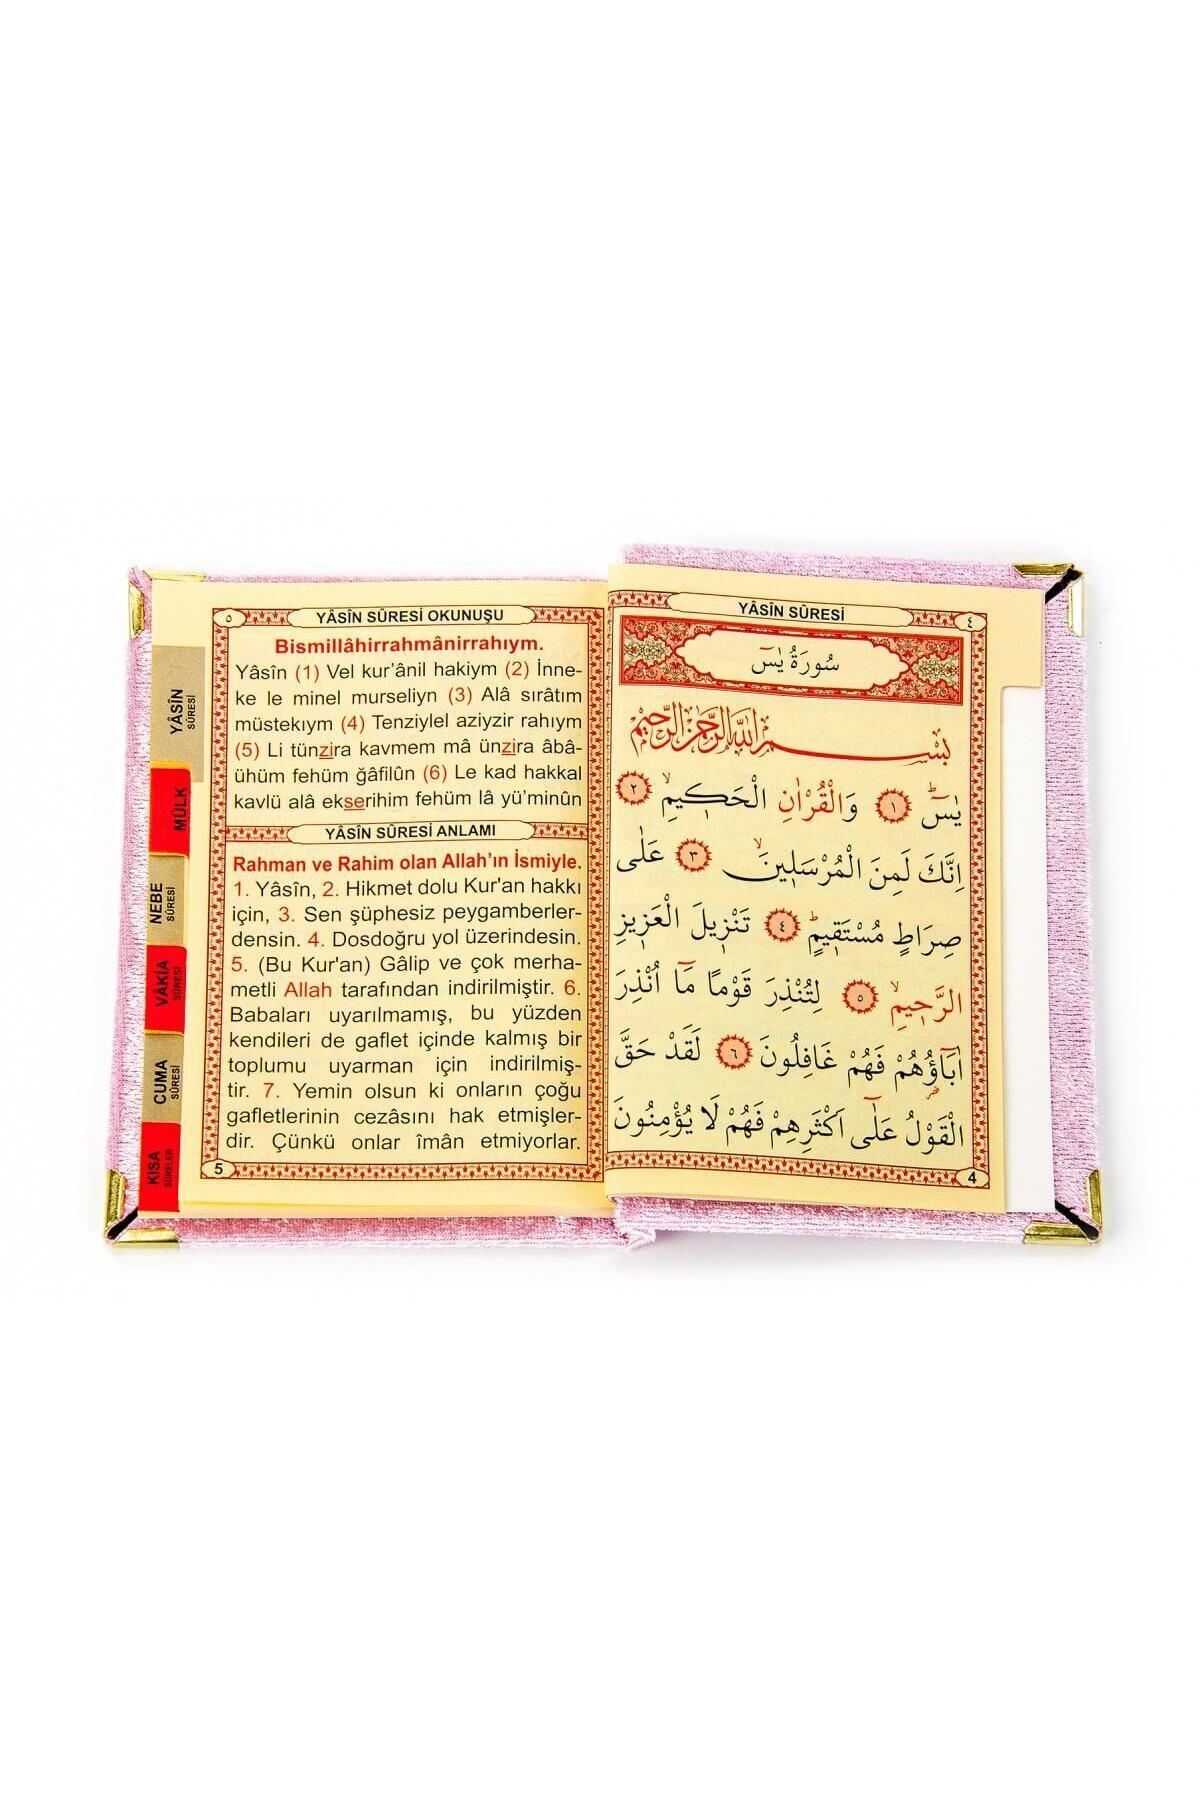 YÂSİN
SÛRESİ
MÜLK
NEBE
SÛRESİ
VÂKİA
SÛRESİ
CUMA
SÛRESİ
KISA
SÛRELER
٥
YÂSÎN SÛRESİ OKUNUŞU
Bismillâhirrahmânirrahıym.
Yâsîn (1) Vel kur’ânil hakiym (2) İnne-
ke le minel murseliyn (3) Alâ sırâtım
müstekıym (4) Tenziylel aziyzir rahıym
(5) Li tünzira kavmem mâ ünzira âbâ-
ühüm fehüm ğâfilûn (6) Le kad hakkal
kavlü alâ ekserihim fehüm lâ yü’minûn
YÂSÎN SÛRESİ ANLAMI
Rahman ve Rahim olan Allah’ın İsmiyle.
1. Yâsîn, 2. Hikmet dolu Kur'an hakkı
için, 3. Sen şüphesiz peygamberler-
densin. 4. Dosdoğru yol üzerindesin.
5. (Bu Kur'an) Gâlip ve çok merha-
metli Allah tarafından indirilmiştir. 6.
Babaları uyarılmamış, bu yüzden
kendileri de gaflet içinde kalmış bir
toplumu uyarman için indirilmiş-
tir. 7. Yemin olsun ki onların çoğu
gafletlerinin cezâsını hak etmişler-
dir. Çünkü onlar îmân etmiyorlar.
5
YÂSİN SÛRESİ
٤
سُورَةُ يٰسٓ
بِسْمِ اللّٰهِ الرَّحْمٰنِ الرَّحِيمِ
يٰسٓۜ ١ وَالْقُرْاٰنِ الْحَك۪يمِۙ ٢
اِنَّكَ لَمِنَ الْمُرْسَل۪ينَۙ ٣ عَلٰى
صِرَاطٍ مُسْتَق۪يمٍۜ ٤ تَنْز۪يلَ الْعَز۪يزِ
الرَّح۪يمِۙ ٥ لِتُنْذِرَ قَوْمًا مَٓا اُنْذِرَ
اٰبَٓاؤُ۬هُمْ فَهُمْ غَافِلُونَ ٦ لَقَدْ حَقَّ
الْقَوْلُ عَلٰٓى اَكْثَرِهِمْ فَهُمْ لَا يُؤْمِنُونَ
4